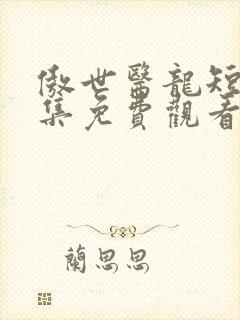 傲世醫龍短
集免費觀看
蘭思思